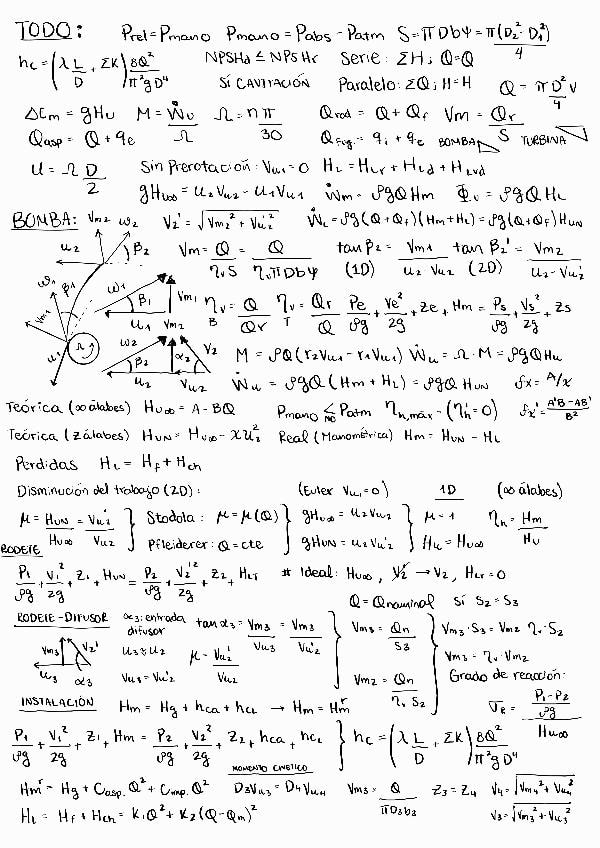 TODO: Prel = Pmano Pmano = Pabs - Patm S = πDbψ = π(D₂² - D₁²)/4
hc = (λ L/D + ΣK) 8Q²/π²gD⁴ NPSHd ≤ NPSHr Serie: ΣH; Q=Q
SÍ CAVITACIÓN Paralelo: ΣQ; H=H Q = π D²/4 V
ΔEm = gHu M = Ẇu/Ω Ω = nπ/30 Qrod = Q + Qf Vm = Qr/S
Qasp = Q + qe Qfug = qi + qe BOMBA TURBINA
u = Ω D/2 Sin Prerotación: Vu1 = 0 HL = HLr + HLd + HLvd
gHu∞ = u2Vu2 - u1Vu1 Ẇm = ρgQHm Φ̇v = ρgQHL
BOMBA: V2' = √(Vm2² + Vu2'²) Ẇu = ρg(Q+Qf)(Hm+HL) = ρg(Q+Qf)HuN
Vm = Q/(ηv S) = Q/(ηv πDbψ) tan β2 = Vm1/(u2 Vu2) (1D) tan β2' = Vm2/(u2 - Vu2') (2D)
ηv = Q/Qr B ηv = Qr/Q T Pe/ρg + Ve²/2g + Ze + Hm = Ps/ρg + Vs²/2g + Zs
M = ρQ(r2Vu2 - r1Vu1) Ẇu = Ω·M = ρgQHu
Ẇu = ρgQ(Hm + HL) = ρgQHuN fx = A/x
Teórica (∞ álabes) Hu∞ = A - BQ Pmano ≤ Patm NO ηh,máx → (ηh' = 0) fx' = (A'B - AB')/B²
Teórica (z álabes) HuN = Hu∞ - xu2² Real (Manométrica) Hm = HuN - HL
Perdidas HL = Hf + Hch
Disminución del trabajo (2D): (Euler Vu1 = 0) 1D (∞ álabes)
μ = HuN/Hu∞ = Vu2'/Vu2 Stodola: μ = μ(Q) gHu∞ = u2Vu2 μ = 1 ηh = Hm/Hu
Pfleiderer: Q = cte gHuN = u2Vu2' Hu = Hu∞
RODETE
P1/ρg + V1²/2g + Z1 + HuN = P2/ρg + V2'²/2g + Z2 + HLr # Ideal: Hu∞, V2' → V2, HLr = 0
Q = Qnominal sí S2 = S3
RODETE-DIFUSOR α3: entrada difusor tan α3 = Vm3/Vu3 = Vm3/Vu2' Vm3 = Qn/S3 Vm3·S3 = Vm2 ηv·S2
u3 ≈ u2 μ = Vu2'/Vu2 Vm3 = ηv·Vm2
Vu3 = Vu2' Vm2 = Qn/(ηv S2) Grado de reacción:
INSTALACIÓN Hm = Hg + hca + hcL → Hm = Hmʳ σR = ((P1 - P2)/ρg)/Hu∞
P1/ρg + V1²/2g + Z1 + Hm = P2/ρg + V2²/2g + Z2 + hca + hcL hc = (λ L/D + ΣK) 8Q²/π²gD⁴
MOMENTO CINÉTICO
Hmʳ = Hg + Casp.Q² + Cimp.Q² D3Vu3 = D4Vu4 Vm3 = Q/(πD3b3) Z3 = Z4 V4 = √(Vm4² + Vu4²)
HL = Hf + Hch = K1Q² + K2(Q - Qm)² V3 = √(Vm3² + Vu3²)